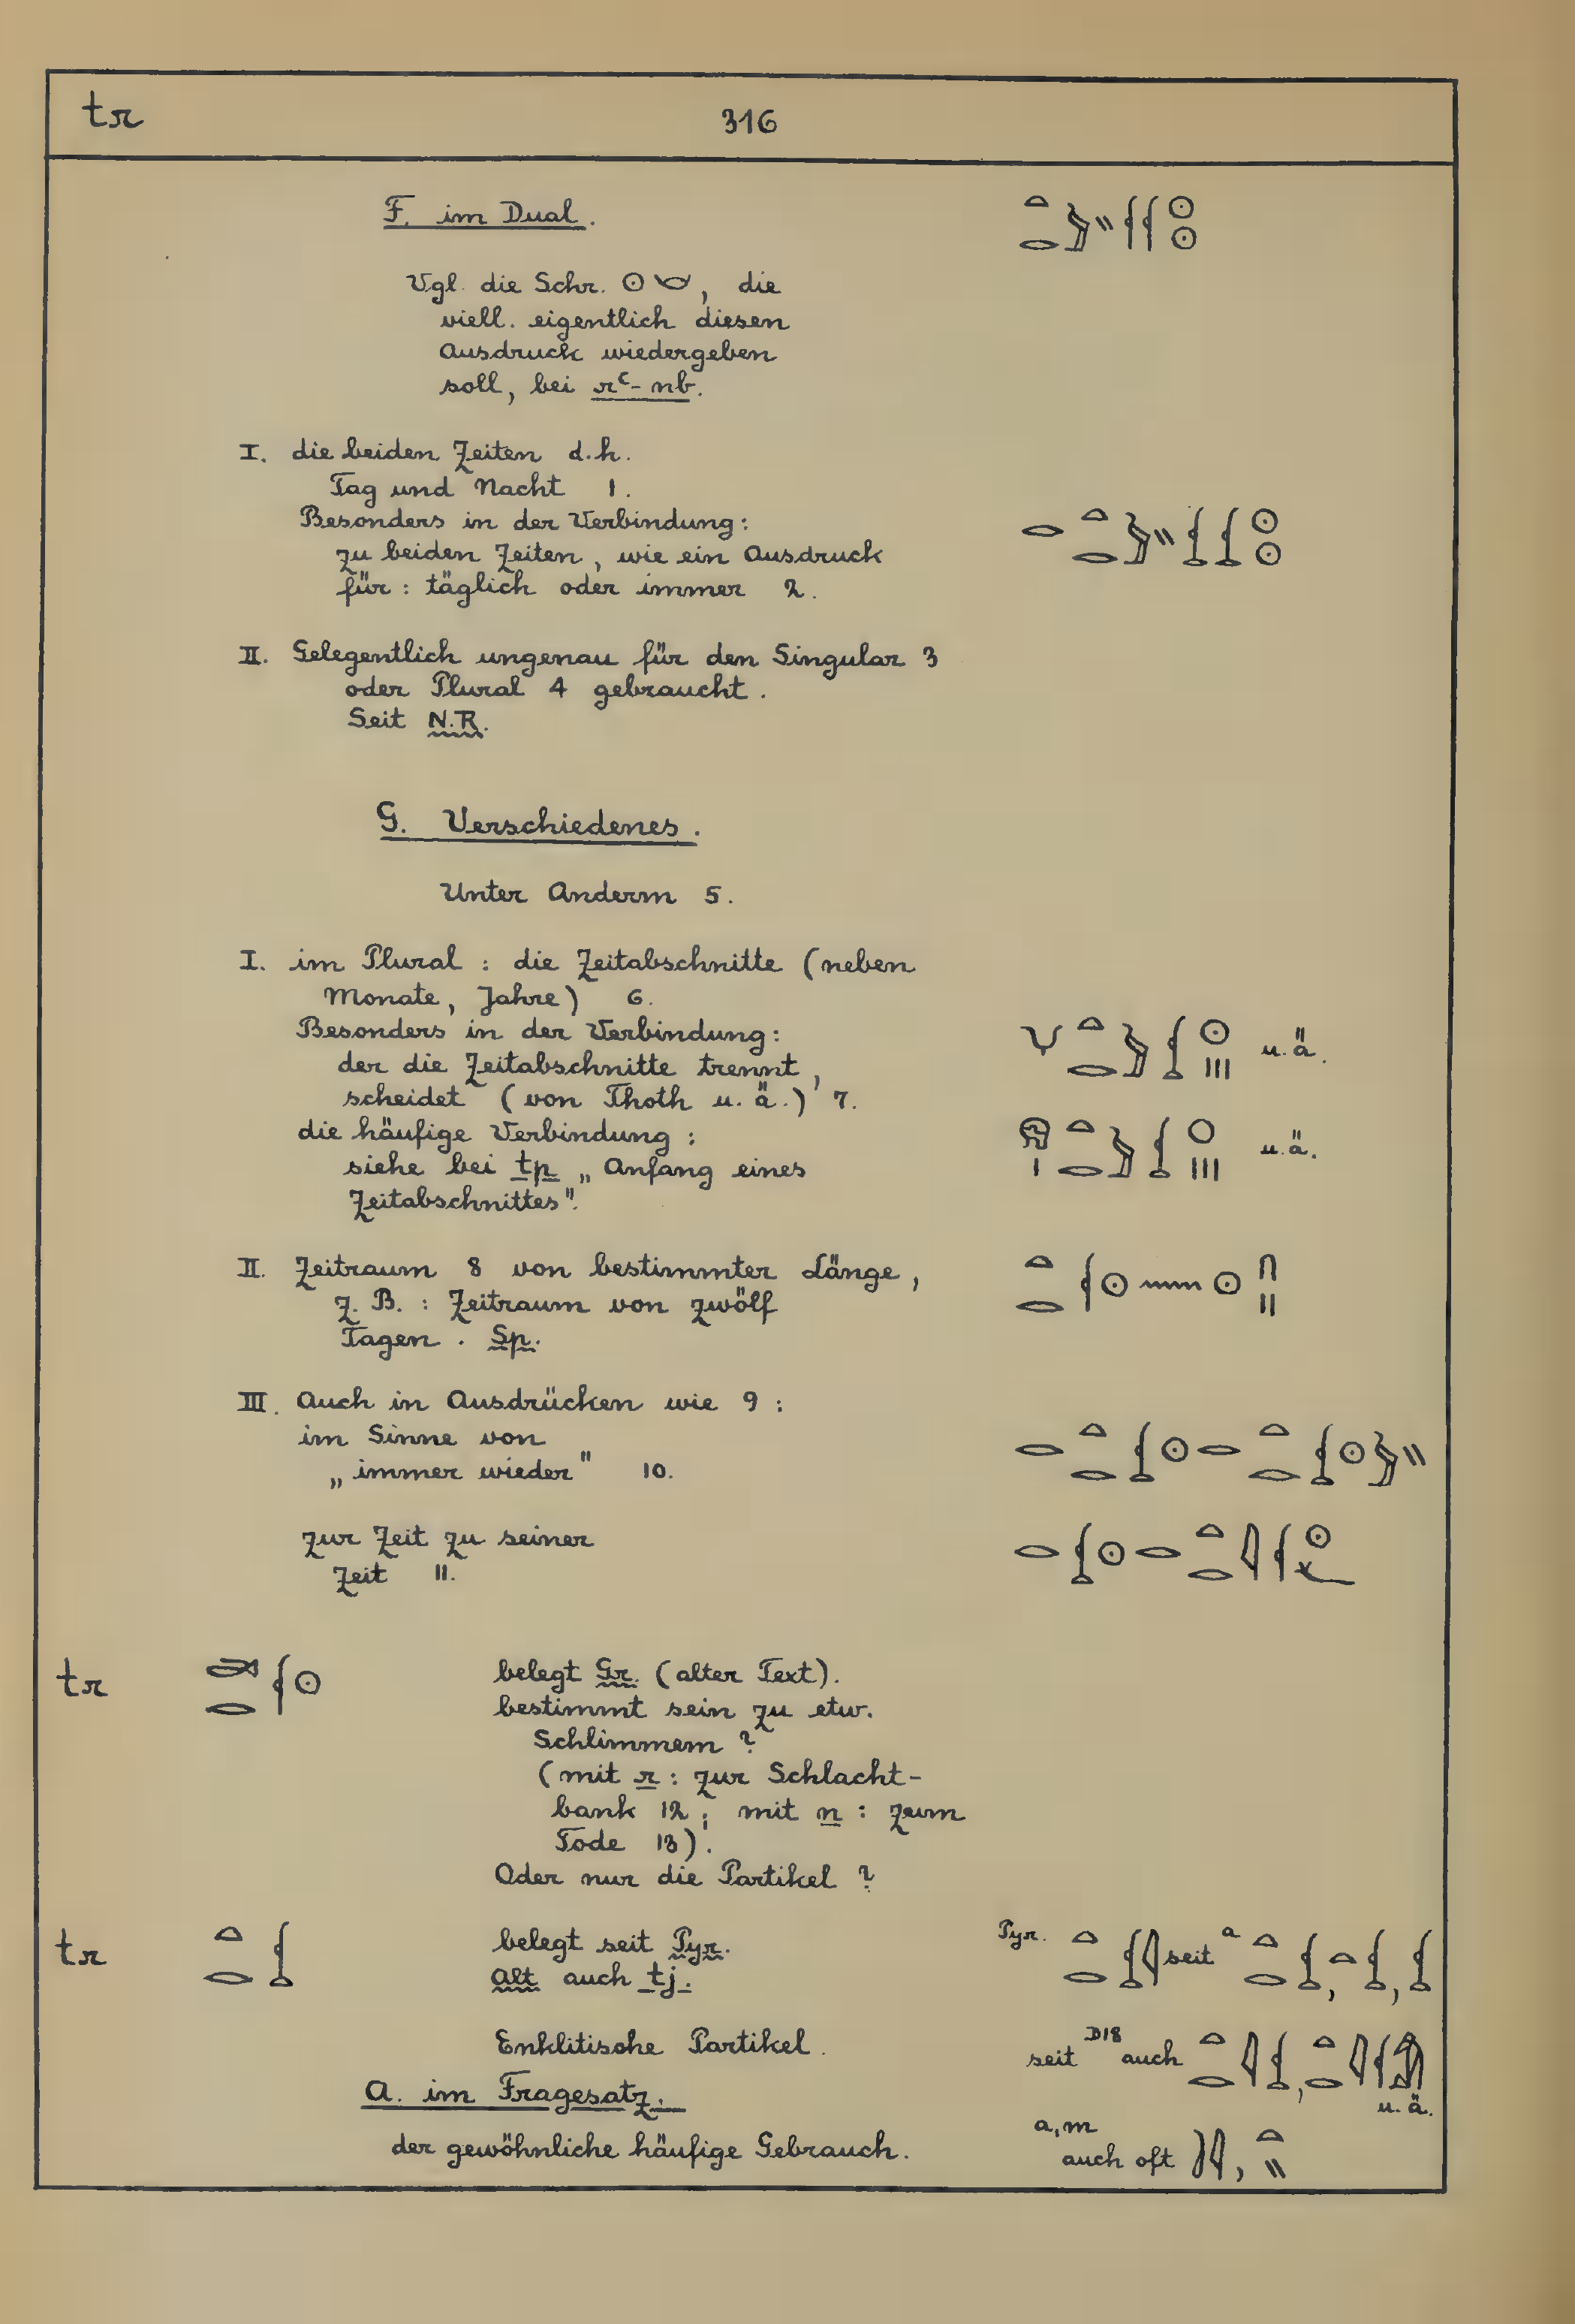 tr 316
F. im Dual.
Vgl. die Schr. , die
viell. eigentlich diesen
Ausdruck wiedergeben
soll, bei rꜥ-nb.
I. die beiden Zeiten d.h.
Tag und Nacht 1.
Besonders in der Verbindung:
zu beiden Zeiten, wie ein Ausdruck
für: täglich oder immer 2.
II. Gelegentlich ungenau für den Singular 3
oder Plural 4 gebraucht.
Seit N.R.
G. Verschiedenes.
Unter Anderm 5.
I. im Plural: die Zeitabschnitte (neben
Monate, Jahre) 6.
Besonders in der Verbindung:
der die Zeitabschnitte trennt, u.ä.
scheidet (von Thoth u. ä.) 7.
die häufige Verbindung: u.ä.
siehe bei tp „Anfang eines
Zeitabschnittes".
II. Zeitraum 8 von bestimmter Länge,
z. B.: Zeitraum von zwölf
Tagen. Sp.
III. Auch in Ausdrücken wie 9:
im Sinne von
„immer wieder" 10.
zur Zeit zu seiner
Zeit 11.
tr belegt Gr. (alter Text).
bestimmt sein zu etw.
Schlimmem?
(mit r: zur Schlacht-
bank 12; mit n: zum
Tode 13).
Oder nur die Partikel?
tr belegt seit Pyr. Pyr. seit a
alt auch tj.
Enklitische Partikel. seit D18 auch
A. im Fragesatz. u.ä.
der gewöhnliche häufige Gebrauch. a,m
auch oft